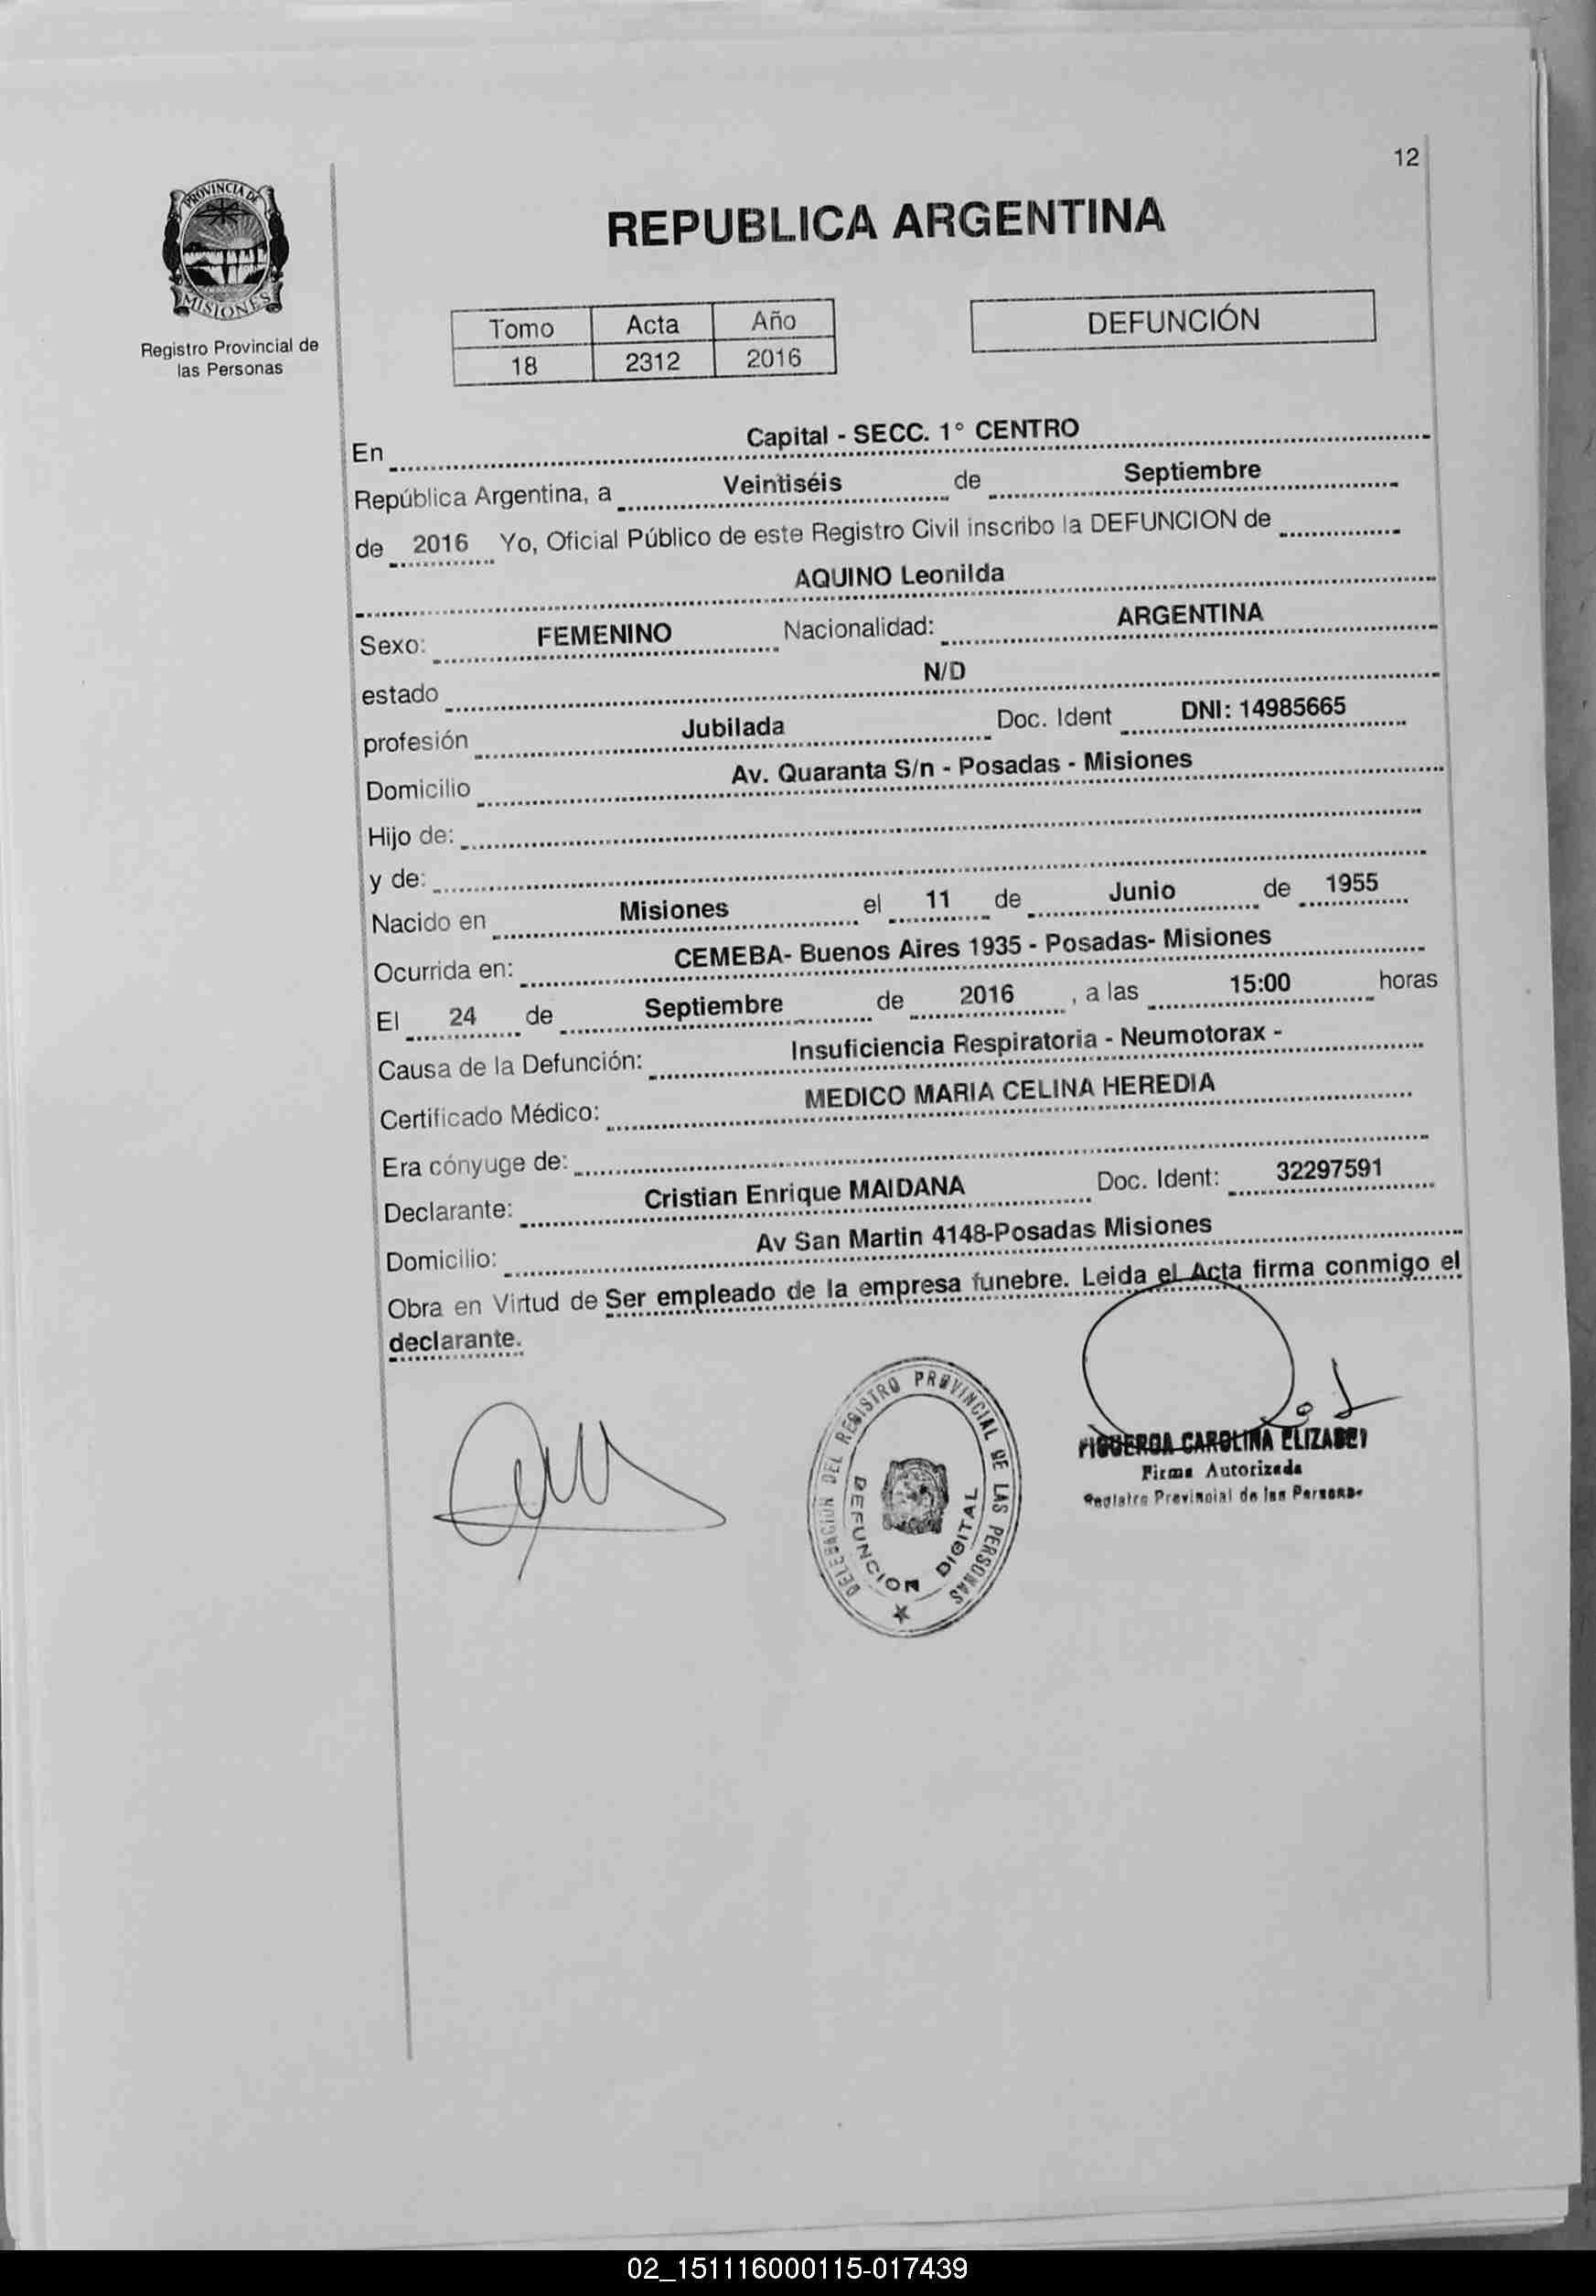 12
PROVINCIA DE
MISIONES
Registro Provincial de
las Personas
REPUBLICA ARGENTINA
Tomo Acta Año
18 2312 2016
DEFUNCIÓN
En Capital - SECC. 1° CENTRO
República Argentina, a Veintiséis de Septiembre
de 2016 Yo, Oficial Público de este Registro Civil inscribo la DEFUNCION de
AQUINO Leonilda
Sexo: FEMENINO Nacionalidad: ARGENTINA
estado N/D
profesión Jubilada Doc. Ident DNI: 14985665
Domicilio Av. Quaranta S/n - Posadas - Misiones
Hijo de:
y de:
Nacido en Misiones el 11 de Junio de 1955
Ocurrida en: CEMEBA- Buenos Aires 1935 - Posadas- Misiones
El 24 de Septiembre de 2016 , a las 15:00 horas
Causa de la Defunción: Insuficiencia Respiratoria - Neumotorax -
Certificado Médico: MEDICO MARIA CELINA HEREDIA
Era cónyuge de:
Declarante: Cristian Enrique MAIDANA Doc. Ident: 32297591
Domicilio: Av San Martin 4148-Posadas Misiones
Obra en Virtud de Ser empleado de la empresa funebre. Leida el Acta firma conmigo el
declarante.
DELEGACION DEL REGISTRO PROVINCIAL DE LAS PERSONAS
DEFUNCION DIGITAL
FIGUEROA CAROLINA ELIZABET
Firma Autorizada
Registro Provincial de las Personas
02_151116000115-017439